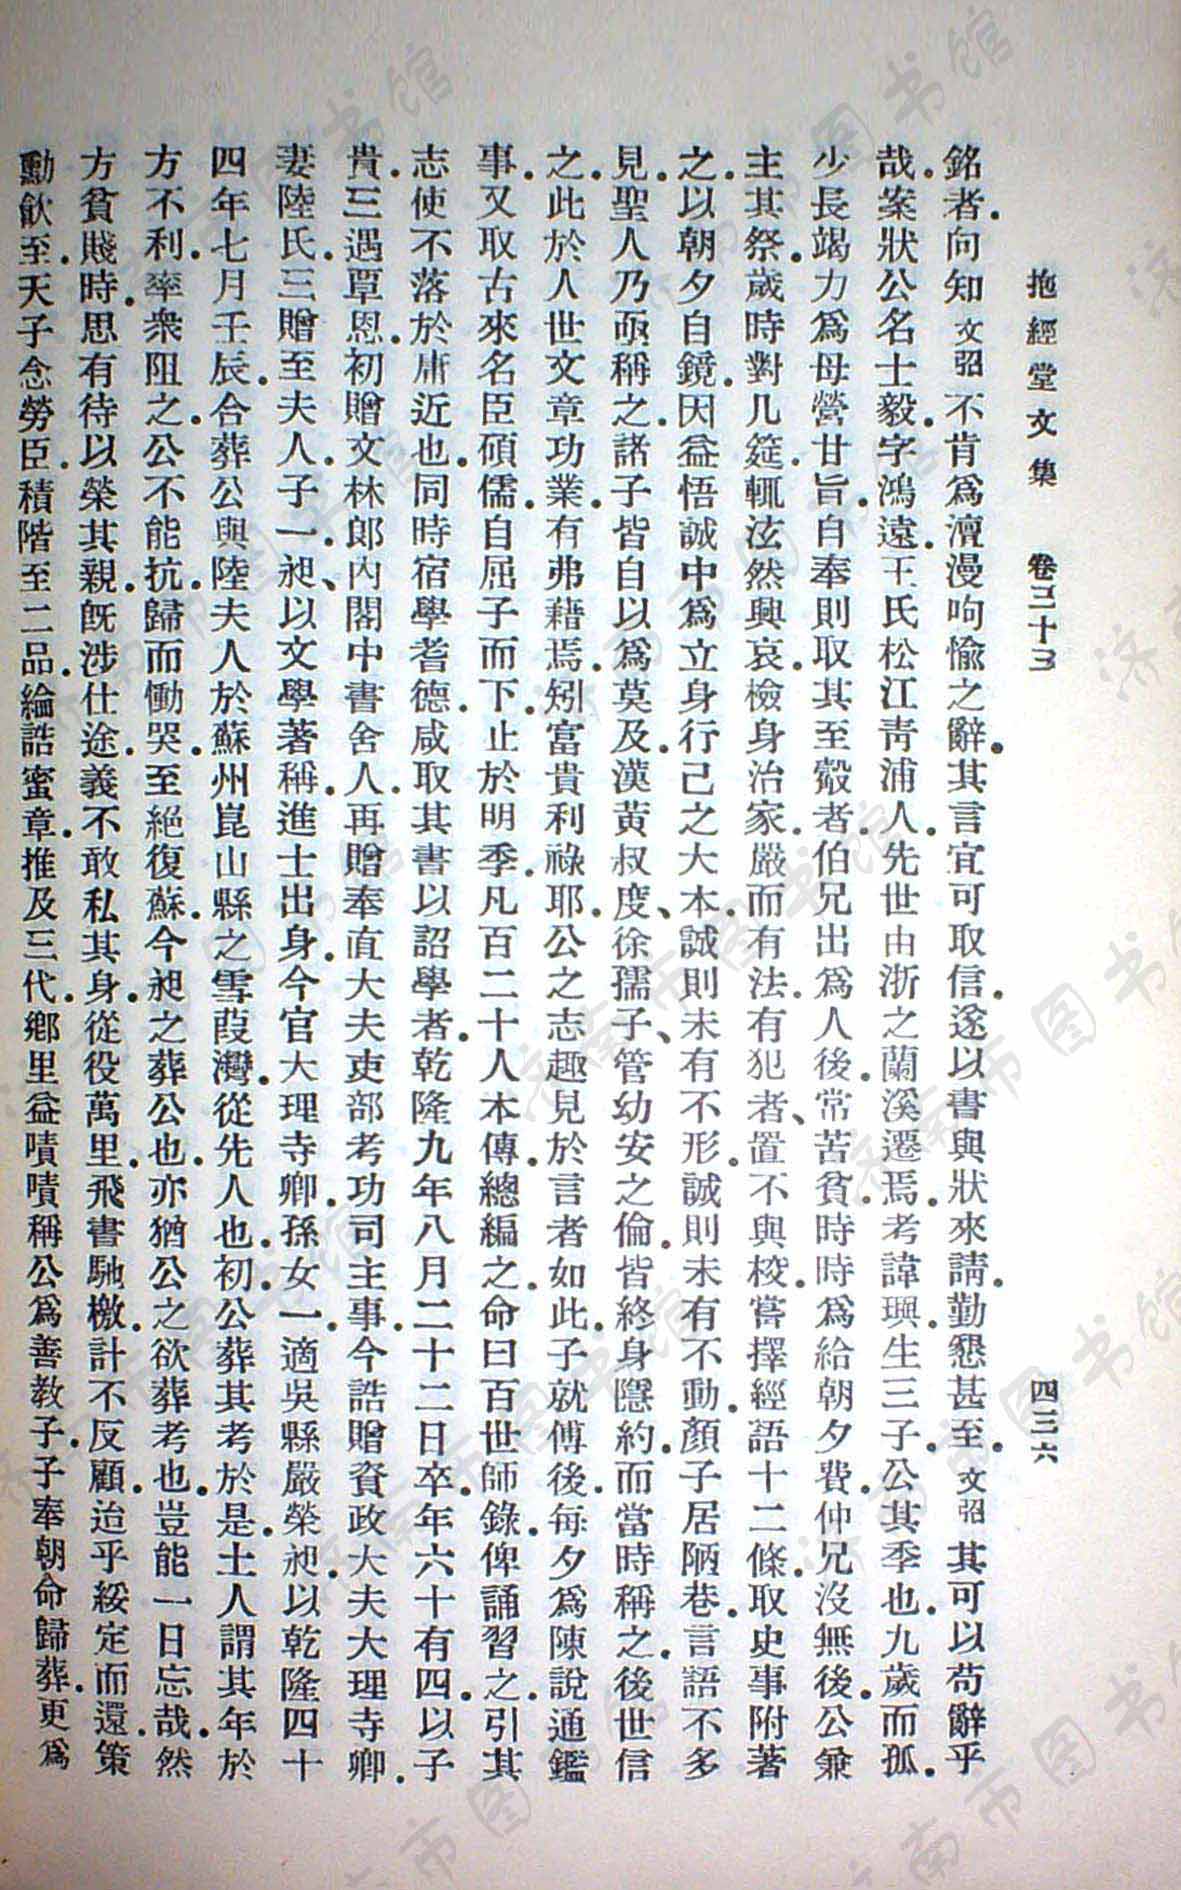 抱經堂文集　卷三十三　四三六
銘者。向知文弨不肯爲澶漫呴愉之辭。其言宜可取信。遂以書與狀來請。勤懇甚至。文弨其可以苟辭乎
哉。案狀公名士毅。字鴻遠。王氏松江青浦人。先世由浙之蘭溪遷焉。考諱興。生三子。公其季也。九歲而孤。
少長竭力爲母營甘旨。自奉則取其至觳者。伯兄出爲人後。常苦貧。時時爲給朝夕費。仲兄沒無後。公兼
主其祭。歲時對几筵。輒泫然興哀。檢身治家。嚴而有法。有犯者、置不與校。嘗擇經語十二條。取史事附著
之。以朝夕自鏡。因益悟誠中爲立身行己之大本。誠則未有不形。誠則未有不動。顏子居陋巷。言語不多
見。聖人乃亟稱之。諸子皆自以爲莫及。漢黃叔度、徐孺子、管幼安之倫。皆終身隱約。而當時稱之。後世信
之。此於人世文章功業。有弗藉焉。矧富貴利祿耶。公之志趣見於言者如此。子就傅後。每夕爲陳說通鑑
事。又取古來名臣碩儒。自屈子而下。止於明季。凡百二十人本傳。總編之。命曰百世師錄。俾誦習之。引其
志使不落於庸近也。同時宿學耆德。咸取其書以詔學者。乾隆九年八月二十二日卒。年六十有四。以子
貴。三遇覃恩。初贈文林郎內閣中書舍人。再贈奉直大夫吏部考功司主事。今誥贈資政大夫大理寺卿。
妻陸氏。三贈至夫人。子一、昶。以文學著稱。進士出身。今官大理寺卿。孫女一。適吳縣嚴榮。昶以乾隆四十
四年七月壬辰。合葬公與陸夫人於蘇州崑山縣之雪葭灣。從先人也。初。公葬其考於是。土人謂其年於
方不利。率衆阻之。公不能抗。歸而慟哭。至絕復蘇。今昶之葬公也。亦猶公之欲葬考也。豈能一日忘哉。然
方貧賤時。思有待以榮其親。旣涉仕途。義不敢私其身。從役萬里。飛書馳檄。計不反顧。迨乎綏定而還。策
勳飮至。天子念勞臣。積階至二品。綸誥蜜章。推及三代。鄉里益嘖嘖稱公爲善敎子。子奉朝命歸葬。更爲